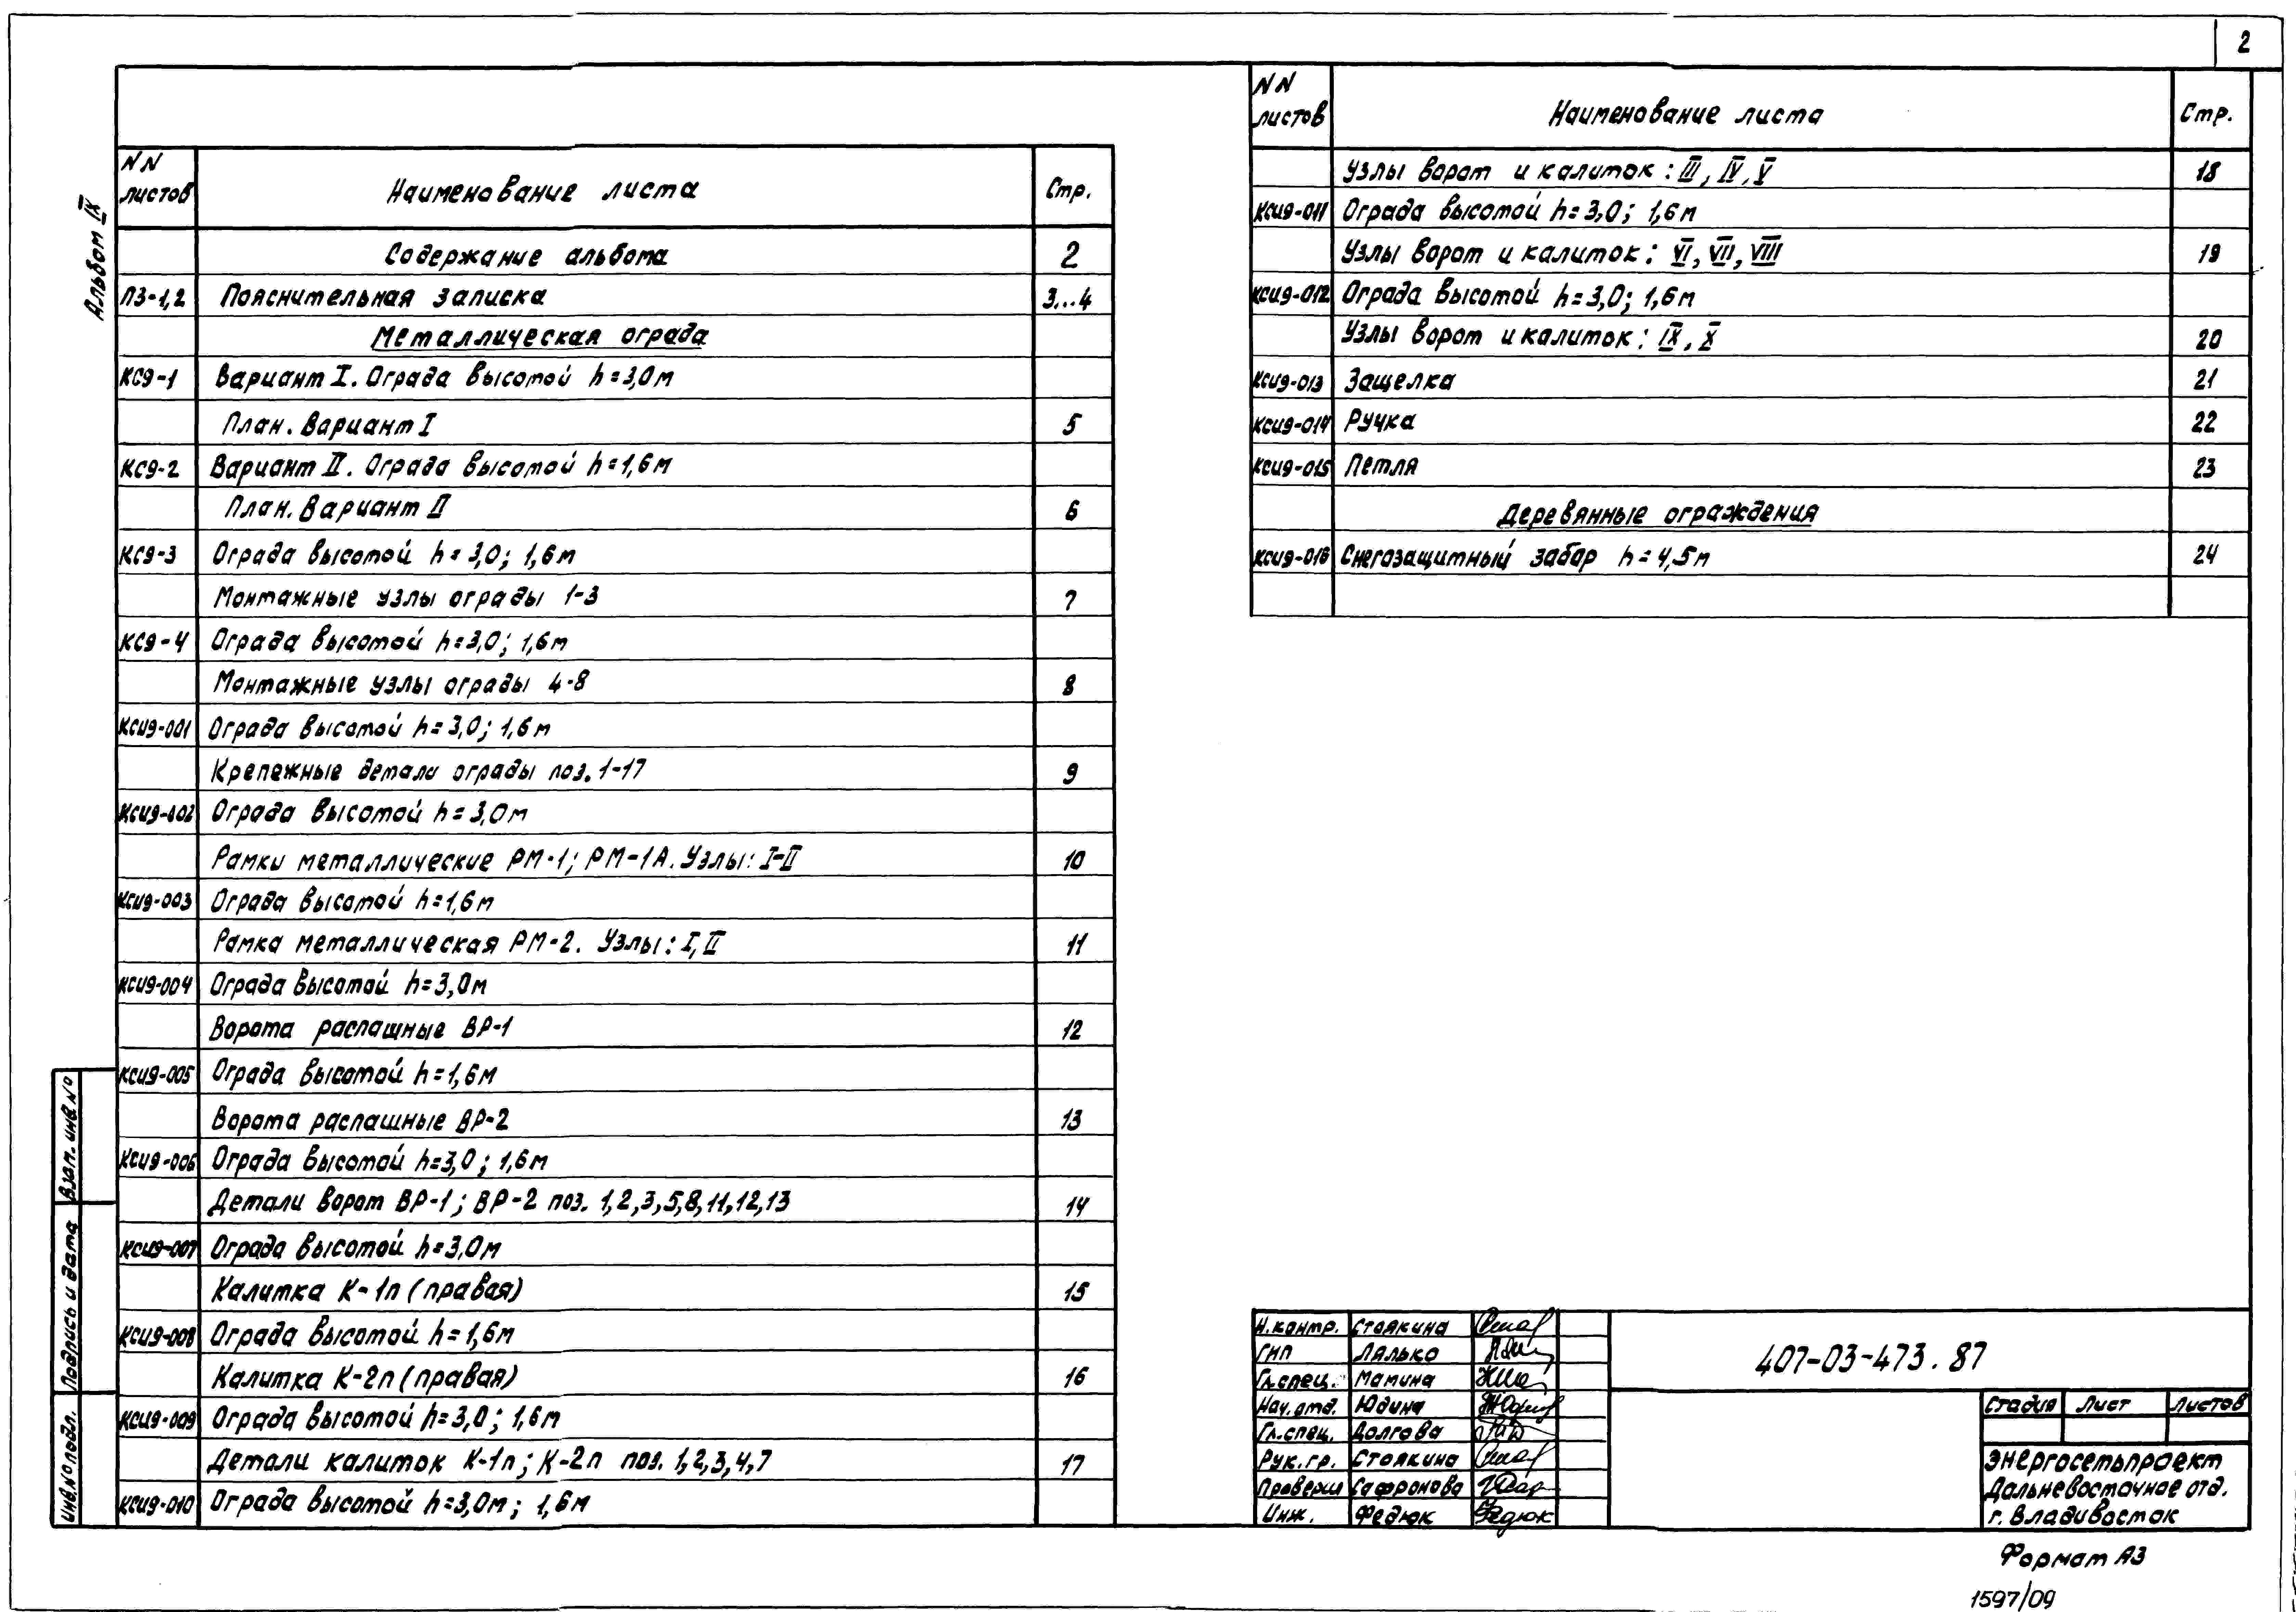 2
Альбом IX
NN листов Наименование листа Стр.
Содержание альбома 2
ПЗ-1,2 Пояснительная записка 3...4
Металлическая ограда
КС9-1 Вариант I. Ограда высотой h=3,0м
План. Вариант I 5
КС9-2 Вариант II. Ограда высотой h=1,6м
План. Вариант II 6
КС9-3 Ограда высотой h=3,0; 1,6м
Монтажные узлы ограды 1-3 7
КС9-4 Ограда высотой h=3,0; 1,6м
Монтажные узлы ограды 4-8 8
КСИ9-001 Ограда высотой h=3,0; 1,6м
Крепежные детали ограды поз. 1-17 9
КСИ9-002 Ограда высотой h=3,0м
Рамки металлические РМ-1; РМ-1А. Узлы: I-II 10
КСИ9-003 Ограда высотой h=1,6м
Рамка металлическая РМ-2. Узлы: I, II 11
КСИ9-004 Ограда высотой h=3,0м
Ворота распашные ВР-1 12
КСИ9-005 Ограда высотой h=1,6м
Ворота распашные ВР-2 13
КСИ9-006 Ограда высотой h=3,0; 1,6м
Детали ворот ВР-1; ВР-2 поз. 1,2,3,5,8,11,12,13 14
КСИ9-007 Ограда высотой h=3,0м
Калитка К-1п (правая) 15
КСИ9-008 Ограда высотой h=1,6м
Калитка К-2п (правая) 16
КСИ9-009 Ограда высотой h=3,0; 1,6м
Детали калиток К-1п; К-2п поз. 1,2,3,4,7 17
КСИ9-010 Ограда высотой h=3,0м; 1,6м
NN листов Наименование листа Стр.
Узлы ворот и калиток: III, IV, V 18
КСИ9-011 Ограда высотой h=3,0; 1,6м
Узлы ворот и калиток: VI, VII, VIII 19
КСИ9-012 Ограда высотой h=3,0; 1,6м
Узлы ворот и калиток: IX, X 20
КСИ9-013 Защелка 21
КСИ9-014 Ручка 22
КСИ9-015 Петля 23
Деревянные ограждения
КСИ9-016 Снегозащитный забор h=4,5м 24
Взам. инв. №
Подпись и дата
Инв. № подл.
Н.контр. Стоякина
ГИП Лялько
Гл.спец. Мамина
Нач.отд. Юдина
Гл.спец. Долгова
Рук.гр. Стоякина
Проверил Сафронова
Инж. Федюк Федюк
407-03-473.87
Стадия Лист Листов
Энергосетьпроект
Дальневосточное отд.
г. Владивосток
Формат А3
1597/09